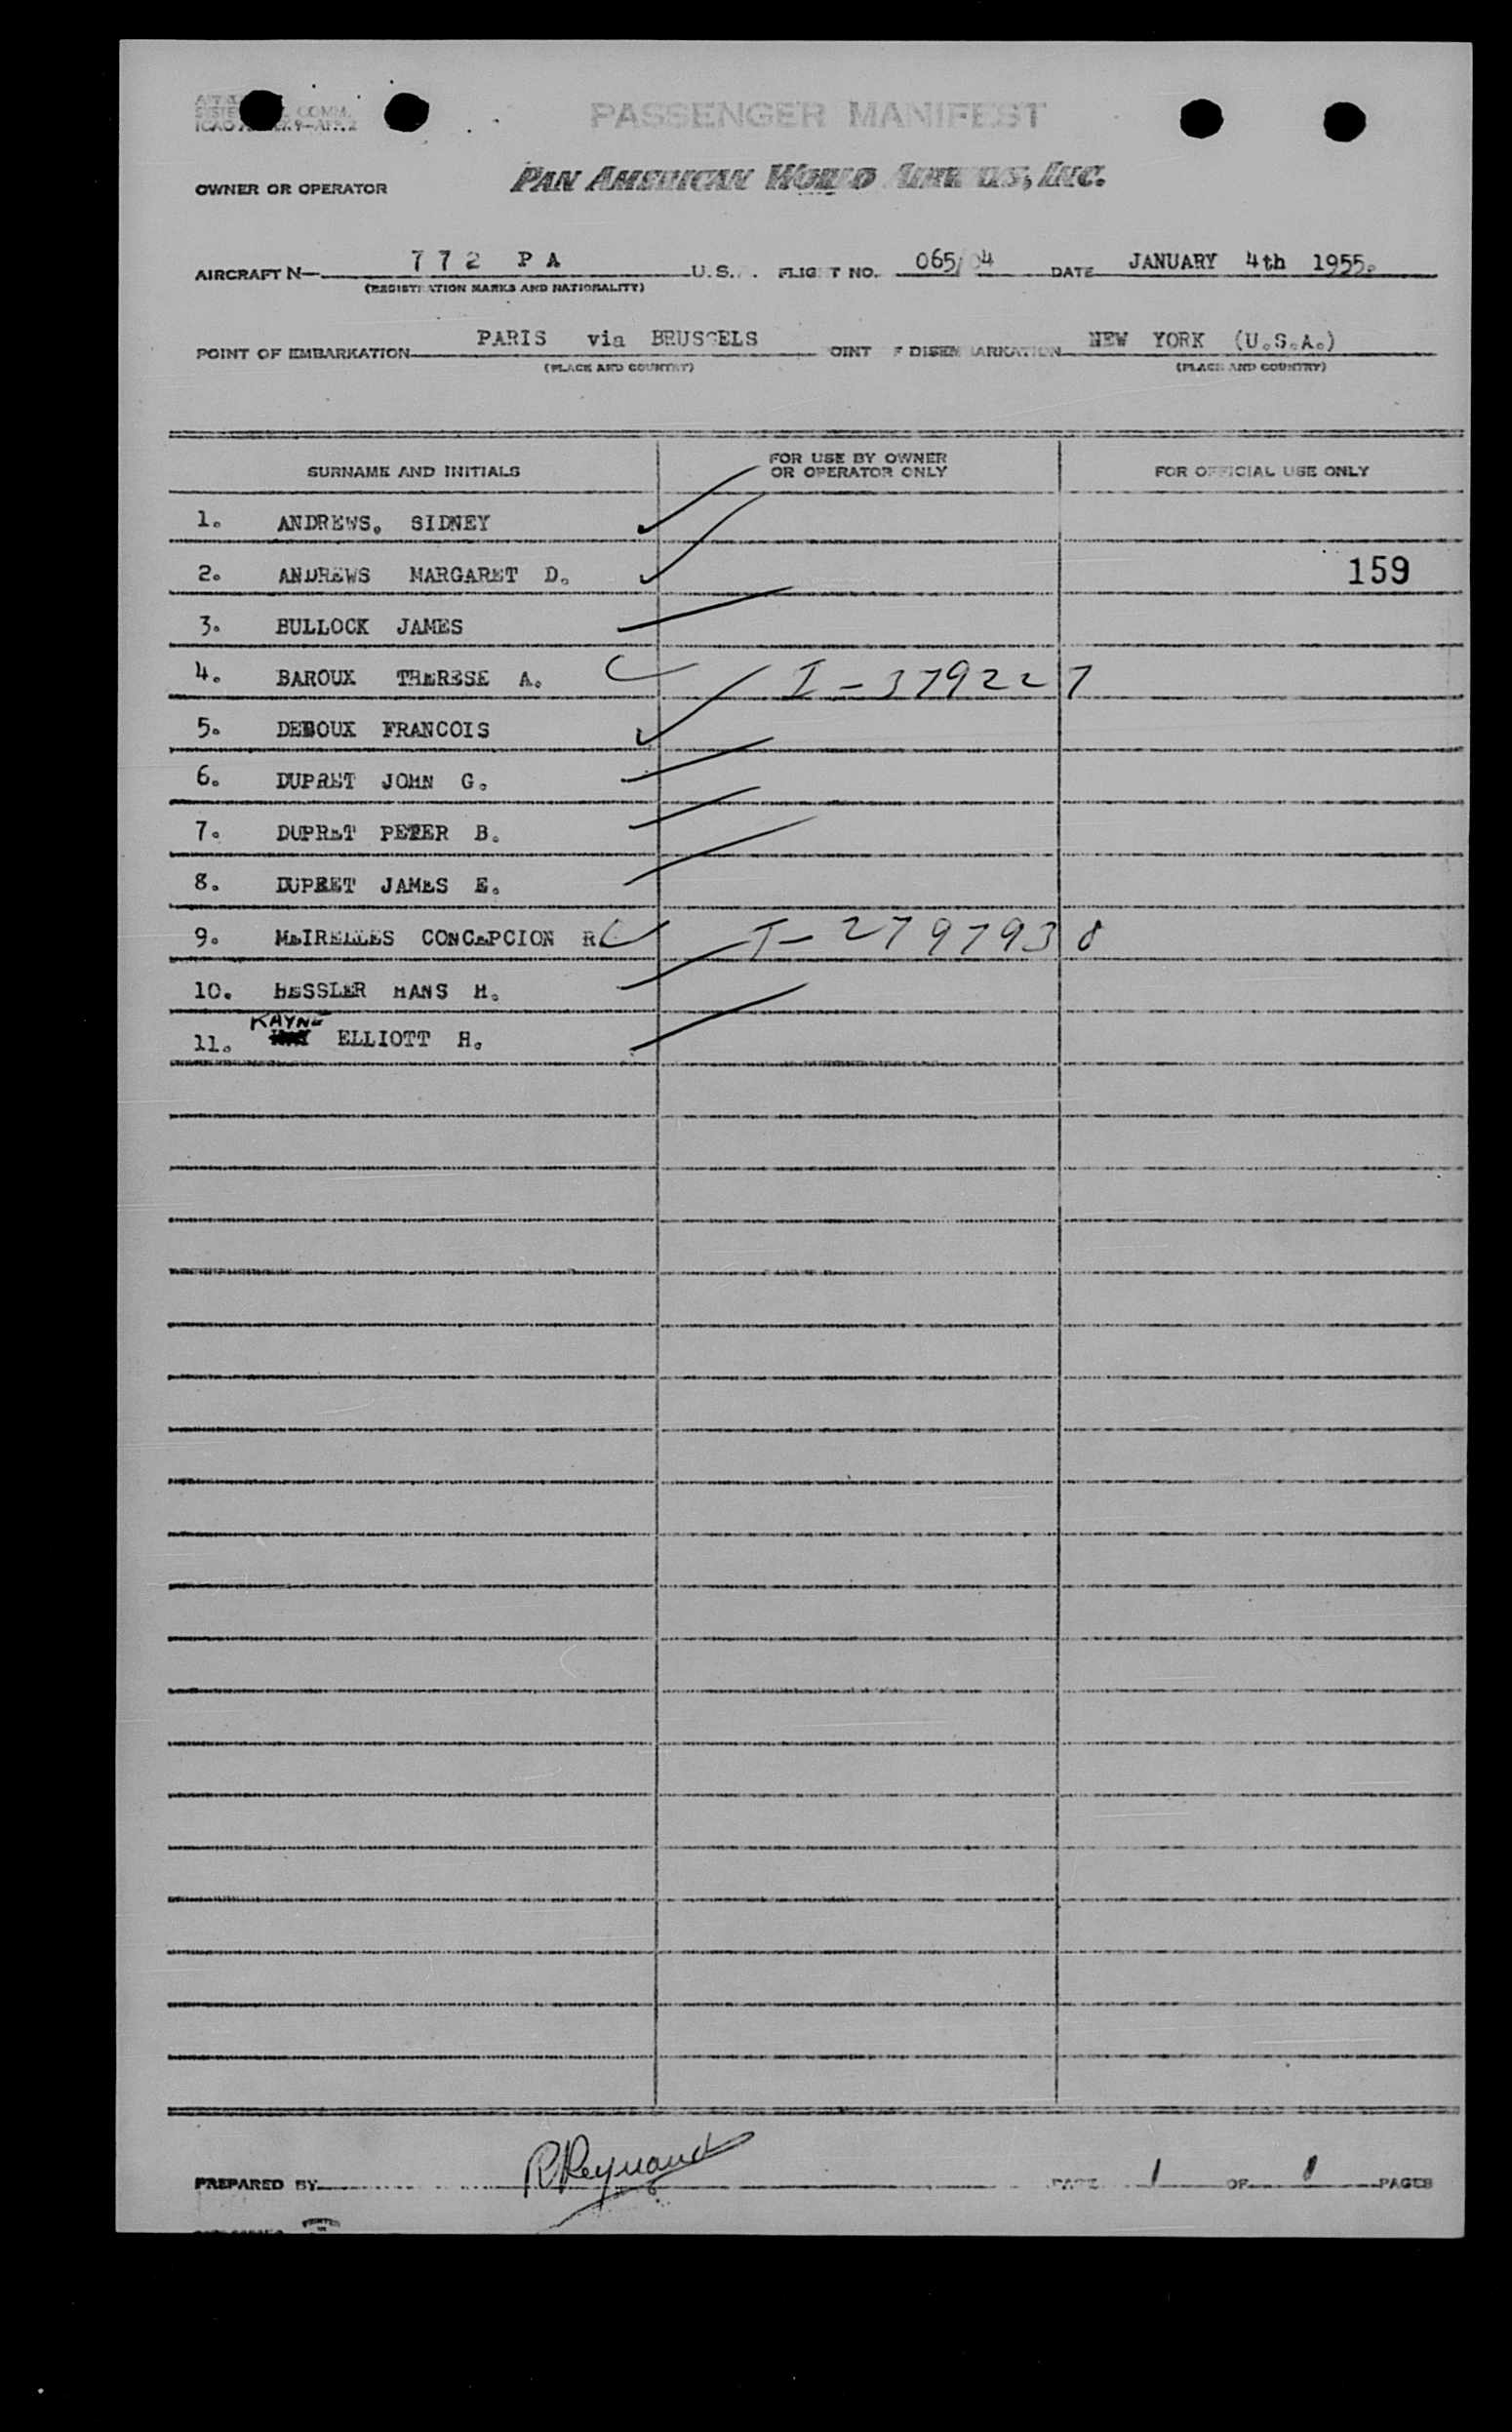 PASSENGER MANIFEST
OWNER OR OPERATOR PAN AMERICAN WORLD AIRWAYS, INC.
AIRCRAFT N— 772 PA U.S. FLIGHT NO. 065/04 DATE JANUARY 4th 1955.
(REGISTRATION MARKS AND NATIONALITY)
POINT OF EMBARKATION PARIS via BRUSSELS POINT OF DISEMBARKATION NEW YORK (U.S.A.)
(PLACE AND COUNTRY) (PLACE AND COUNTRY)
SURNAME AND INITIALS FOR USE BY OWNER OR OPERATOR ONLY FOR OFFICIAL USE ONLY
1. ANDREWS. SIDNEY
2. ANDREWS MARGARET D. 159
3. BULLOCK JAMES
4. BAROUX THERESE A. I-379227
5. FRANCOIS
6. DUPRET JOHN G.
7. DUPRET PETER B.
8. DUPRET JAMES E.
9. MEIRELLES CONCEPCION R I-2797938
10. HESSLER HANS H.
11. KAYNE ELLIOTT H.
PREPARED BY R Reynaud PAGE 1 OF 1 PAGES